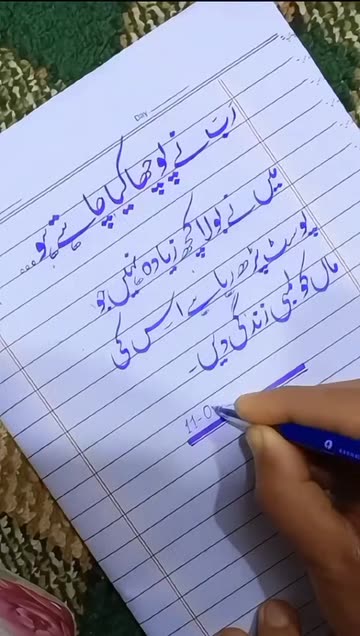 Day
رب نے پوچھا کیا چاہتے ہو...
میں نے بولا کچھ زیادہ نہیں جو
پوسٹ پڑھ رہا ہے اس کی
ماں کو لمبی زندگی دیں۔
11-0